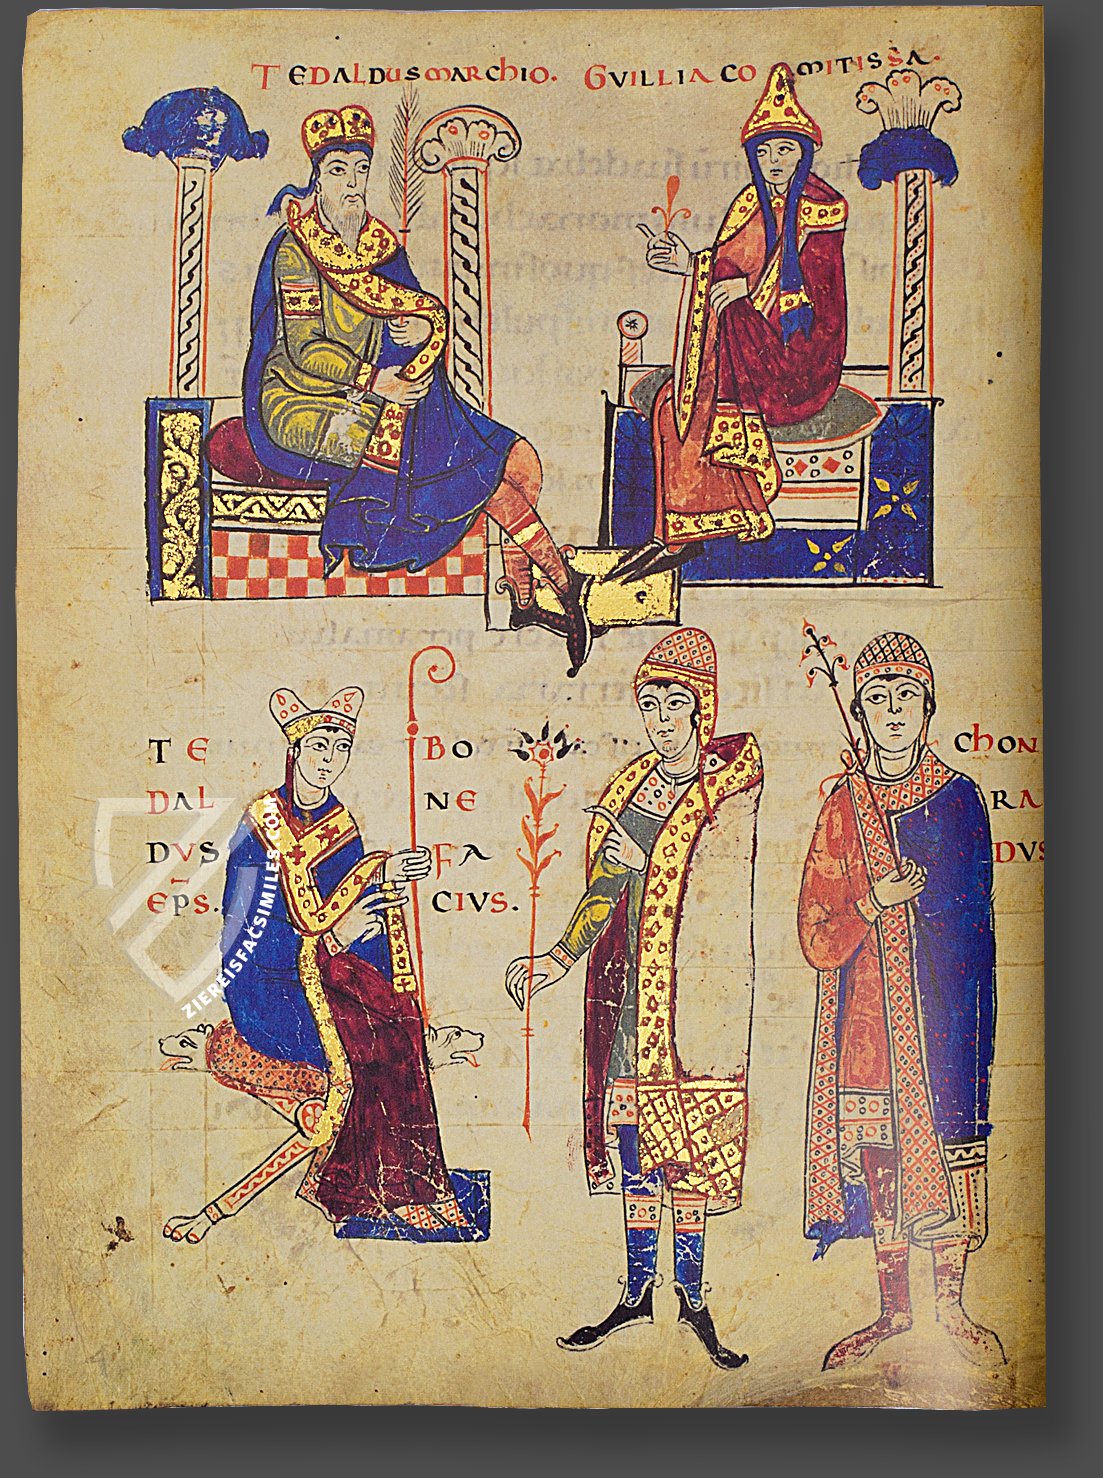 TEDALDUS MARCHIO. GVILLIA COMITISSA.
TE
DAL
DVS
EPS.
BO
NE
FA
CIVS.
CHON
RA
DVS
ZIEREISFACSIMILES.COM